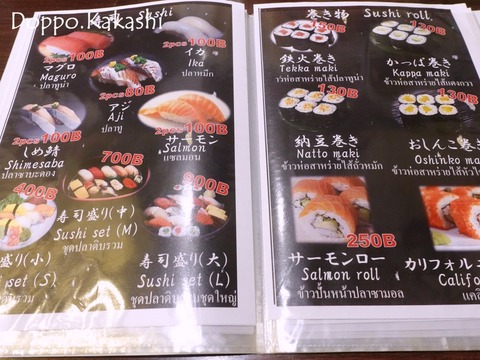 Doppo.Kakashi
Sushi
2pcs100B
マグロ
Maguro
ปลาทูน่า
2pcs100B
イカ
Ika
ปลาหมึก
2pcs80B
アジ
Aji
ปลาทู
2pcs100B
しめ鯖
Shimesaba
ปลาซาบะดอง
2pcs100B
サーモン
Salmon
แซลมอน
700B
寿司盛り(中)
Sushi set (M)
ชุดปลาดิบรวม
400B
盛り(小)
set (S)
ดิบรวม
900B
寿司盛り(大)
Sushi set (L)
ชุดใหญ่
巻き物
Sushi roll
鉄火巻き
Tekka maki
ข้าวห่อสาหร่ายไส้ปลาทูน่า
かっぱ巻き
Kappa maki
ข้าวห่อสาหร่ายไส้แตงกวา
130B
130B
納豆巻き
Natto maki
ข้าวห่อสาหร่ายไส้ถั่วหมัก
おしんこ巻
Oshinko ma
ข้าวห่อสาหร่ายไส้หัวไ
250B
サーモンロー
Salmon roll
ข้าวปั้นหน้าปลาซามอล
カリフォルニ
Califo